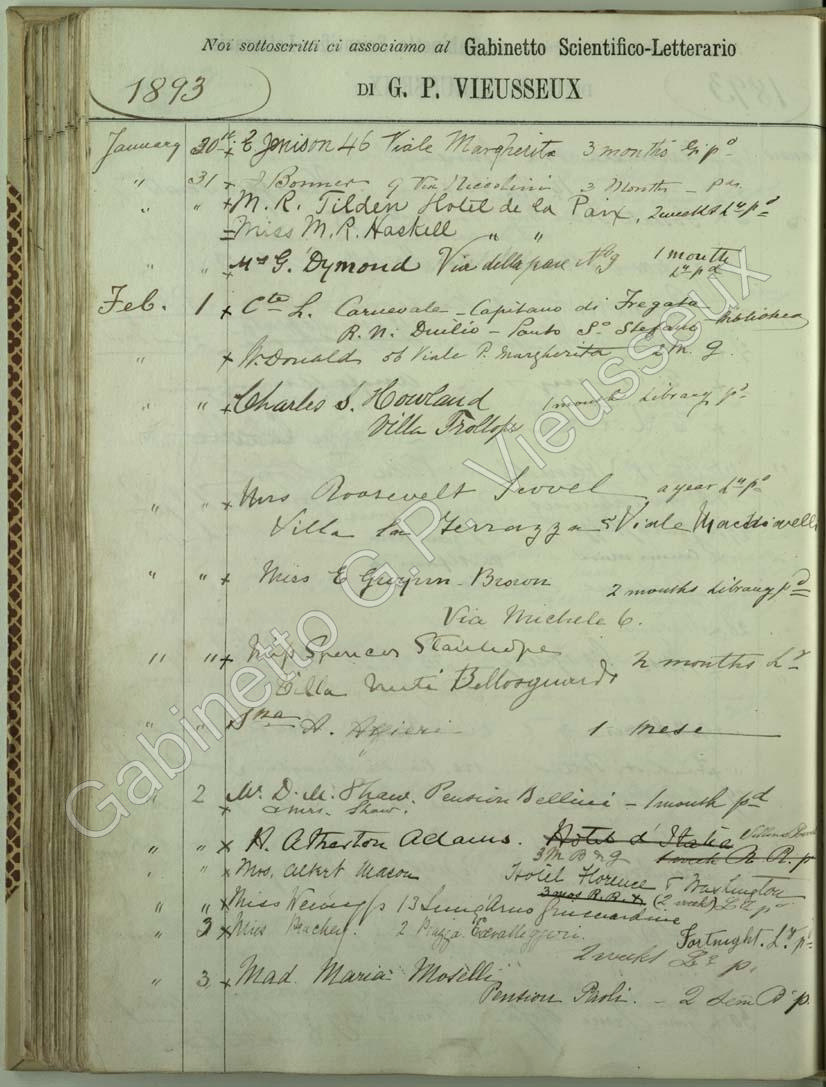 Noi sottoscritti ci associamo al Gabinetto Scientifico-Letterario
1893
DI G. P. VIEUSSEUX
January 30 + E Jenison 46 Viale Margherita 3 months
" 31 + J Bonner 9 Via Niccolini 3 Months - pd.
" " + M. R. Tilden Hotel de la Paix, 2 weeks Ly pd
Miss M. R. Haskell " "
" " Mrs G. Dymond Via della pace No 9 1 month
Ly pd
Feb. 1 + Cte L. Carnevale - Capitano di Fregata
R. N. Duilio - Santo Stefano Biblioteca
" + W. Donald 56 Viale P. Margherita 2 M. g.
" " + Charles S. Howland 1 month Library pd
Villa Trollope
" " + Mrs Roosevelt Scovel a year Ly pd
Villa la Terrazza 5 Viale Machiavelli
" " + Miss E Gwynn-Brown 2 months Library pd
Via Michele 6.
" " + Miss Spencer Stanhope 2 months Ly
Villa Nuti Bellosguardo
" " Sna A. Alfieri 1 mese
" 2 Mr. D. M. Shaw. Pension Bellini - 1 month pd
& Mrs. Shaw.
" " x H. Atherton Adams. Hotel d'Italia
3 M B & g
" " Mrs. Albert Mason Hotel Florence & Washington
3 mos R. R. (2 weeks) p
" " x Miss 13 Lung'Arno Guicciardini
" 3 x Miss 2 Piazza Cavalleggeri. Fortnight. Ly p
2 weeks p.
" 3 + Mad. Maria Moselli
Pension Paoli. - 2 Sem B p.
Gabinetto G.P. Vieusseux